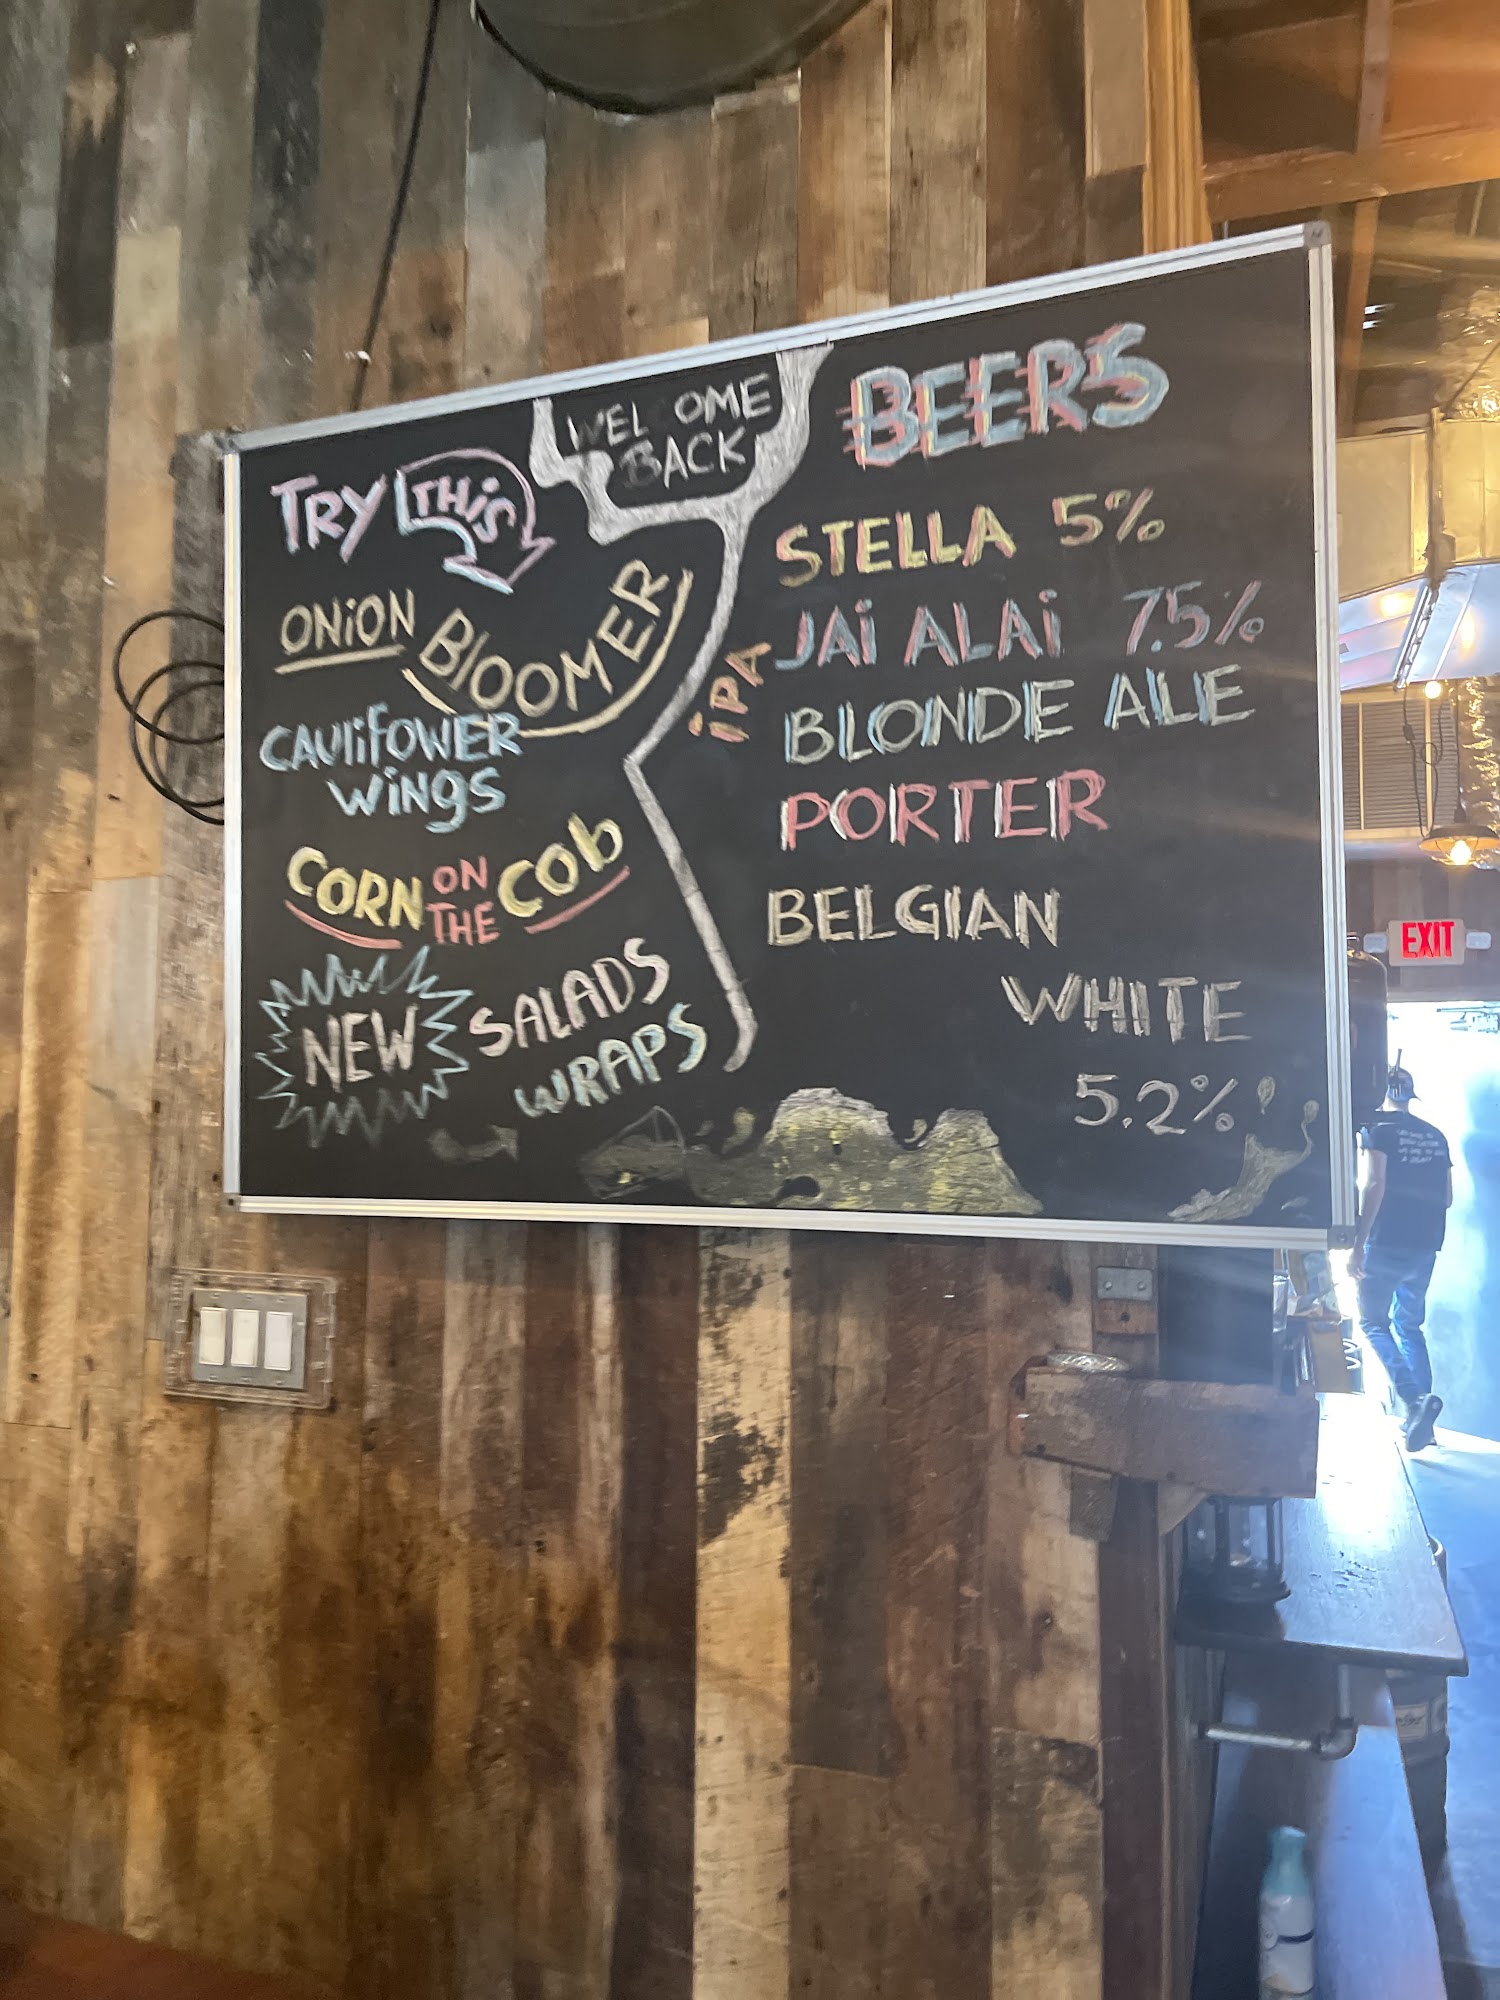 WELCOME
BACK
TRY THiS
ONiON BLOOMER
CAULiFOWER
WiNgS
CORN ON THE COb
NEW SALADS
WRAPS
BEERS
STELLA 5%
iPA JAi ALAi 7.5%
BLONDE ALE
PORTER
BELGIAN
WHITE
5.2%
EXIT